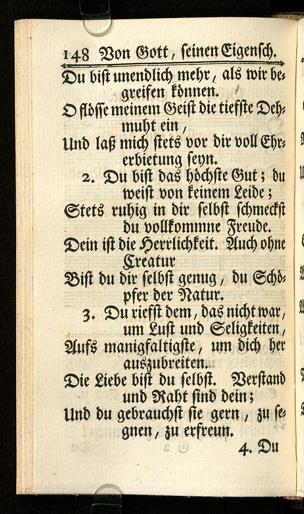 148 Von Gott, seinen Eigensch.
Du bist unendlich mehr, als wir be-
greifen können.
O flösse meinem Geist die tiefste Deh-
muht ein,
Und laß mich stets vor dir voll Ehr-
erbietung seyn.
2. Du bist das höchste Gut; du
weist von keinem Leide;
Stets ruhig in dir selbst schmeckst
du vollkommne Freude.
Dein ist die Herrlichkeit. Auch ohne
Creatur
Bist du dir selbst genug, du Schö-
pfer der Natur.
3. Du riefst dem, das nicht war,
um Lust und Seligkeiten,
Aufs manigfaltigste, um dich her
auszubreiten.
Die Liebe bist du selbst. Verstand
und Raht sind dein;
Und du gebrauchst sie gern, zu se-
gnen, zu erfreun.
4. Du